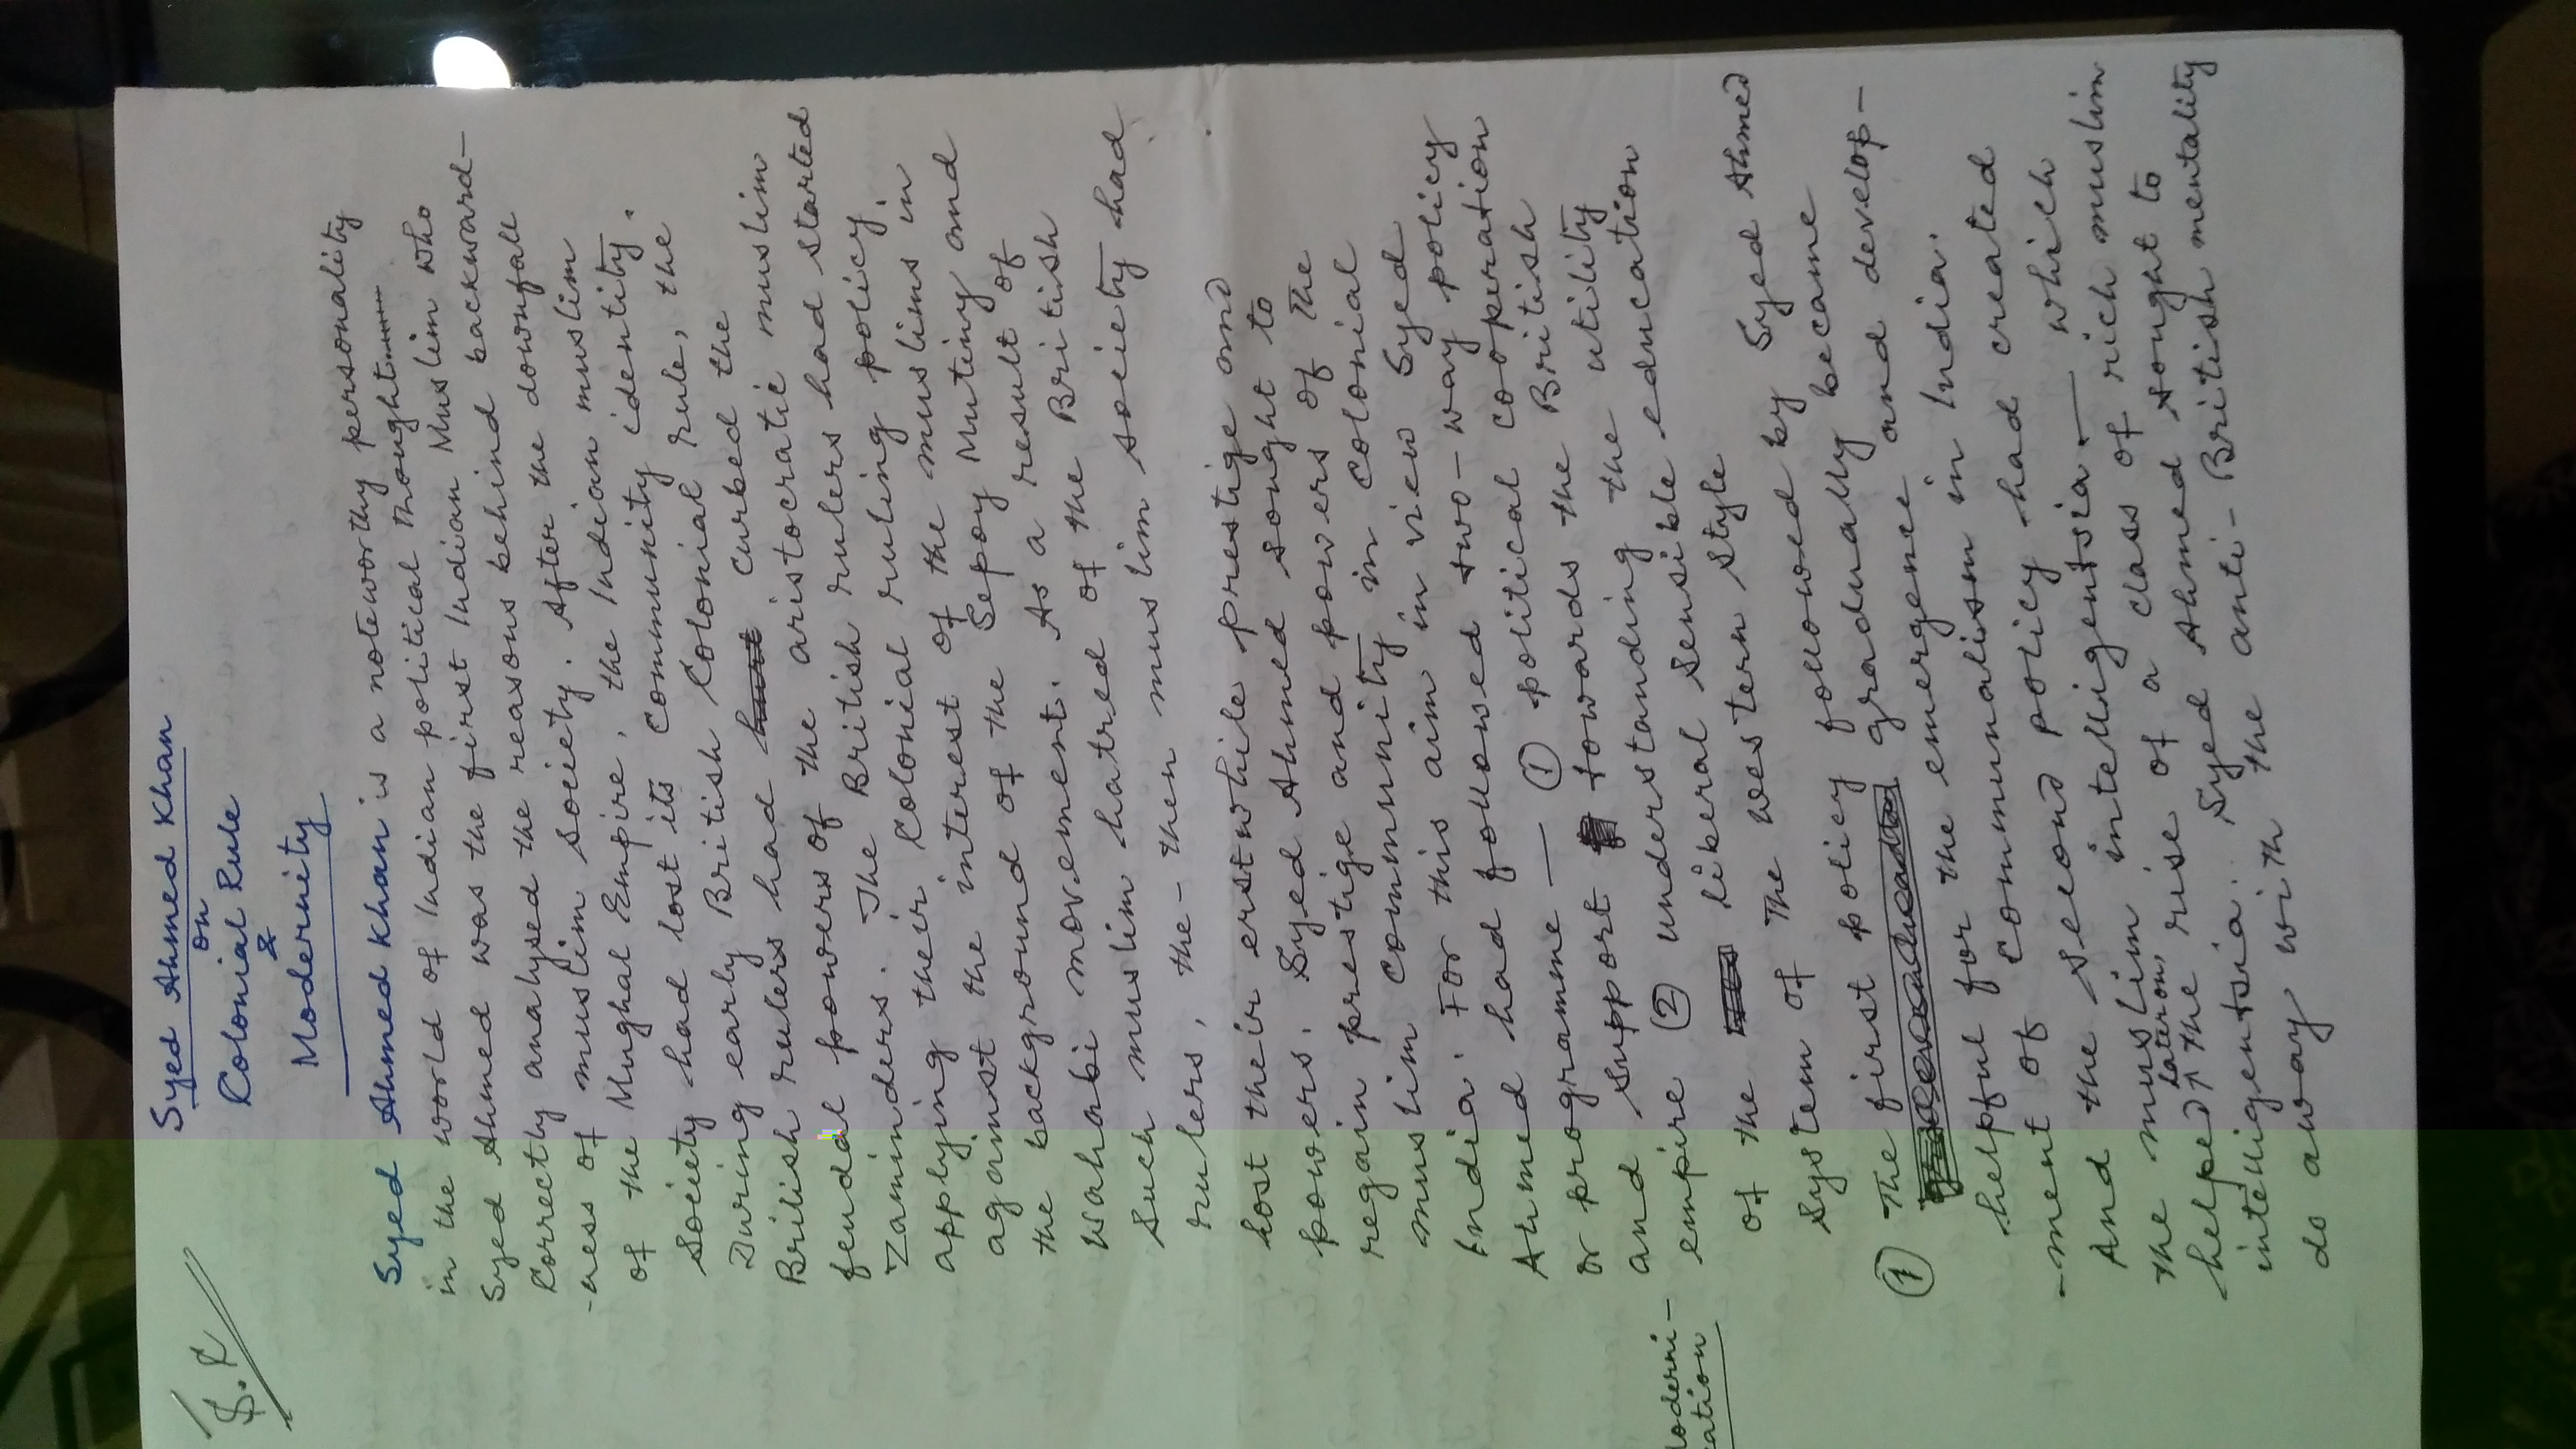 S.R
Syed Ahmed Khan
on
Colonial Rule
&
Modernity
Syed Ahmed Khan is a noteworthy personality
in the world of Indian political thought
Syed Ahmed was the first Indian Muslim who
Correctly analysed the reasons behind backward-
-ness of muslim society. After the downfall
of the Mughal Empire, the Indian muslim
Society had lost its Community identity.
During early British Colonial rule, the
British rulers had curbed the
feudal powers of the aristocratic muslim
Zaminders. The British rulers had started
applying their Colonial ruling policy.
against the interest of the muslims in
the background of the Sepoy Mutiny and
Wahabi movement. As a result of
such muslim hatred of the British
rulers, the-then muslim society had
lost their erstwhile prestige and
powers. Syed Ahmed sought to
regain prestige and powers of the
muslim community in colonial
India. For this aim in view Syed
Ahmed had followed two-way policy
or programme — ① political cooperation
and support towards the British
empire ② understanding the utility
of the liberal sensible education
System of the western style
① The first policy followed by Syed Ahmed
gradually became
helpful for the emergence and develop-
-ment of Communalism in India.
And the second policy had created
the muslim intelligentsia — which
helped later on the rise of a class of rich muslim
intelligentsia. Syed Ahmed sought to
do away with the anti-British mentality